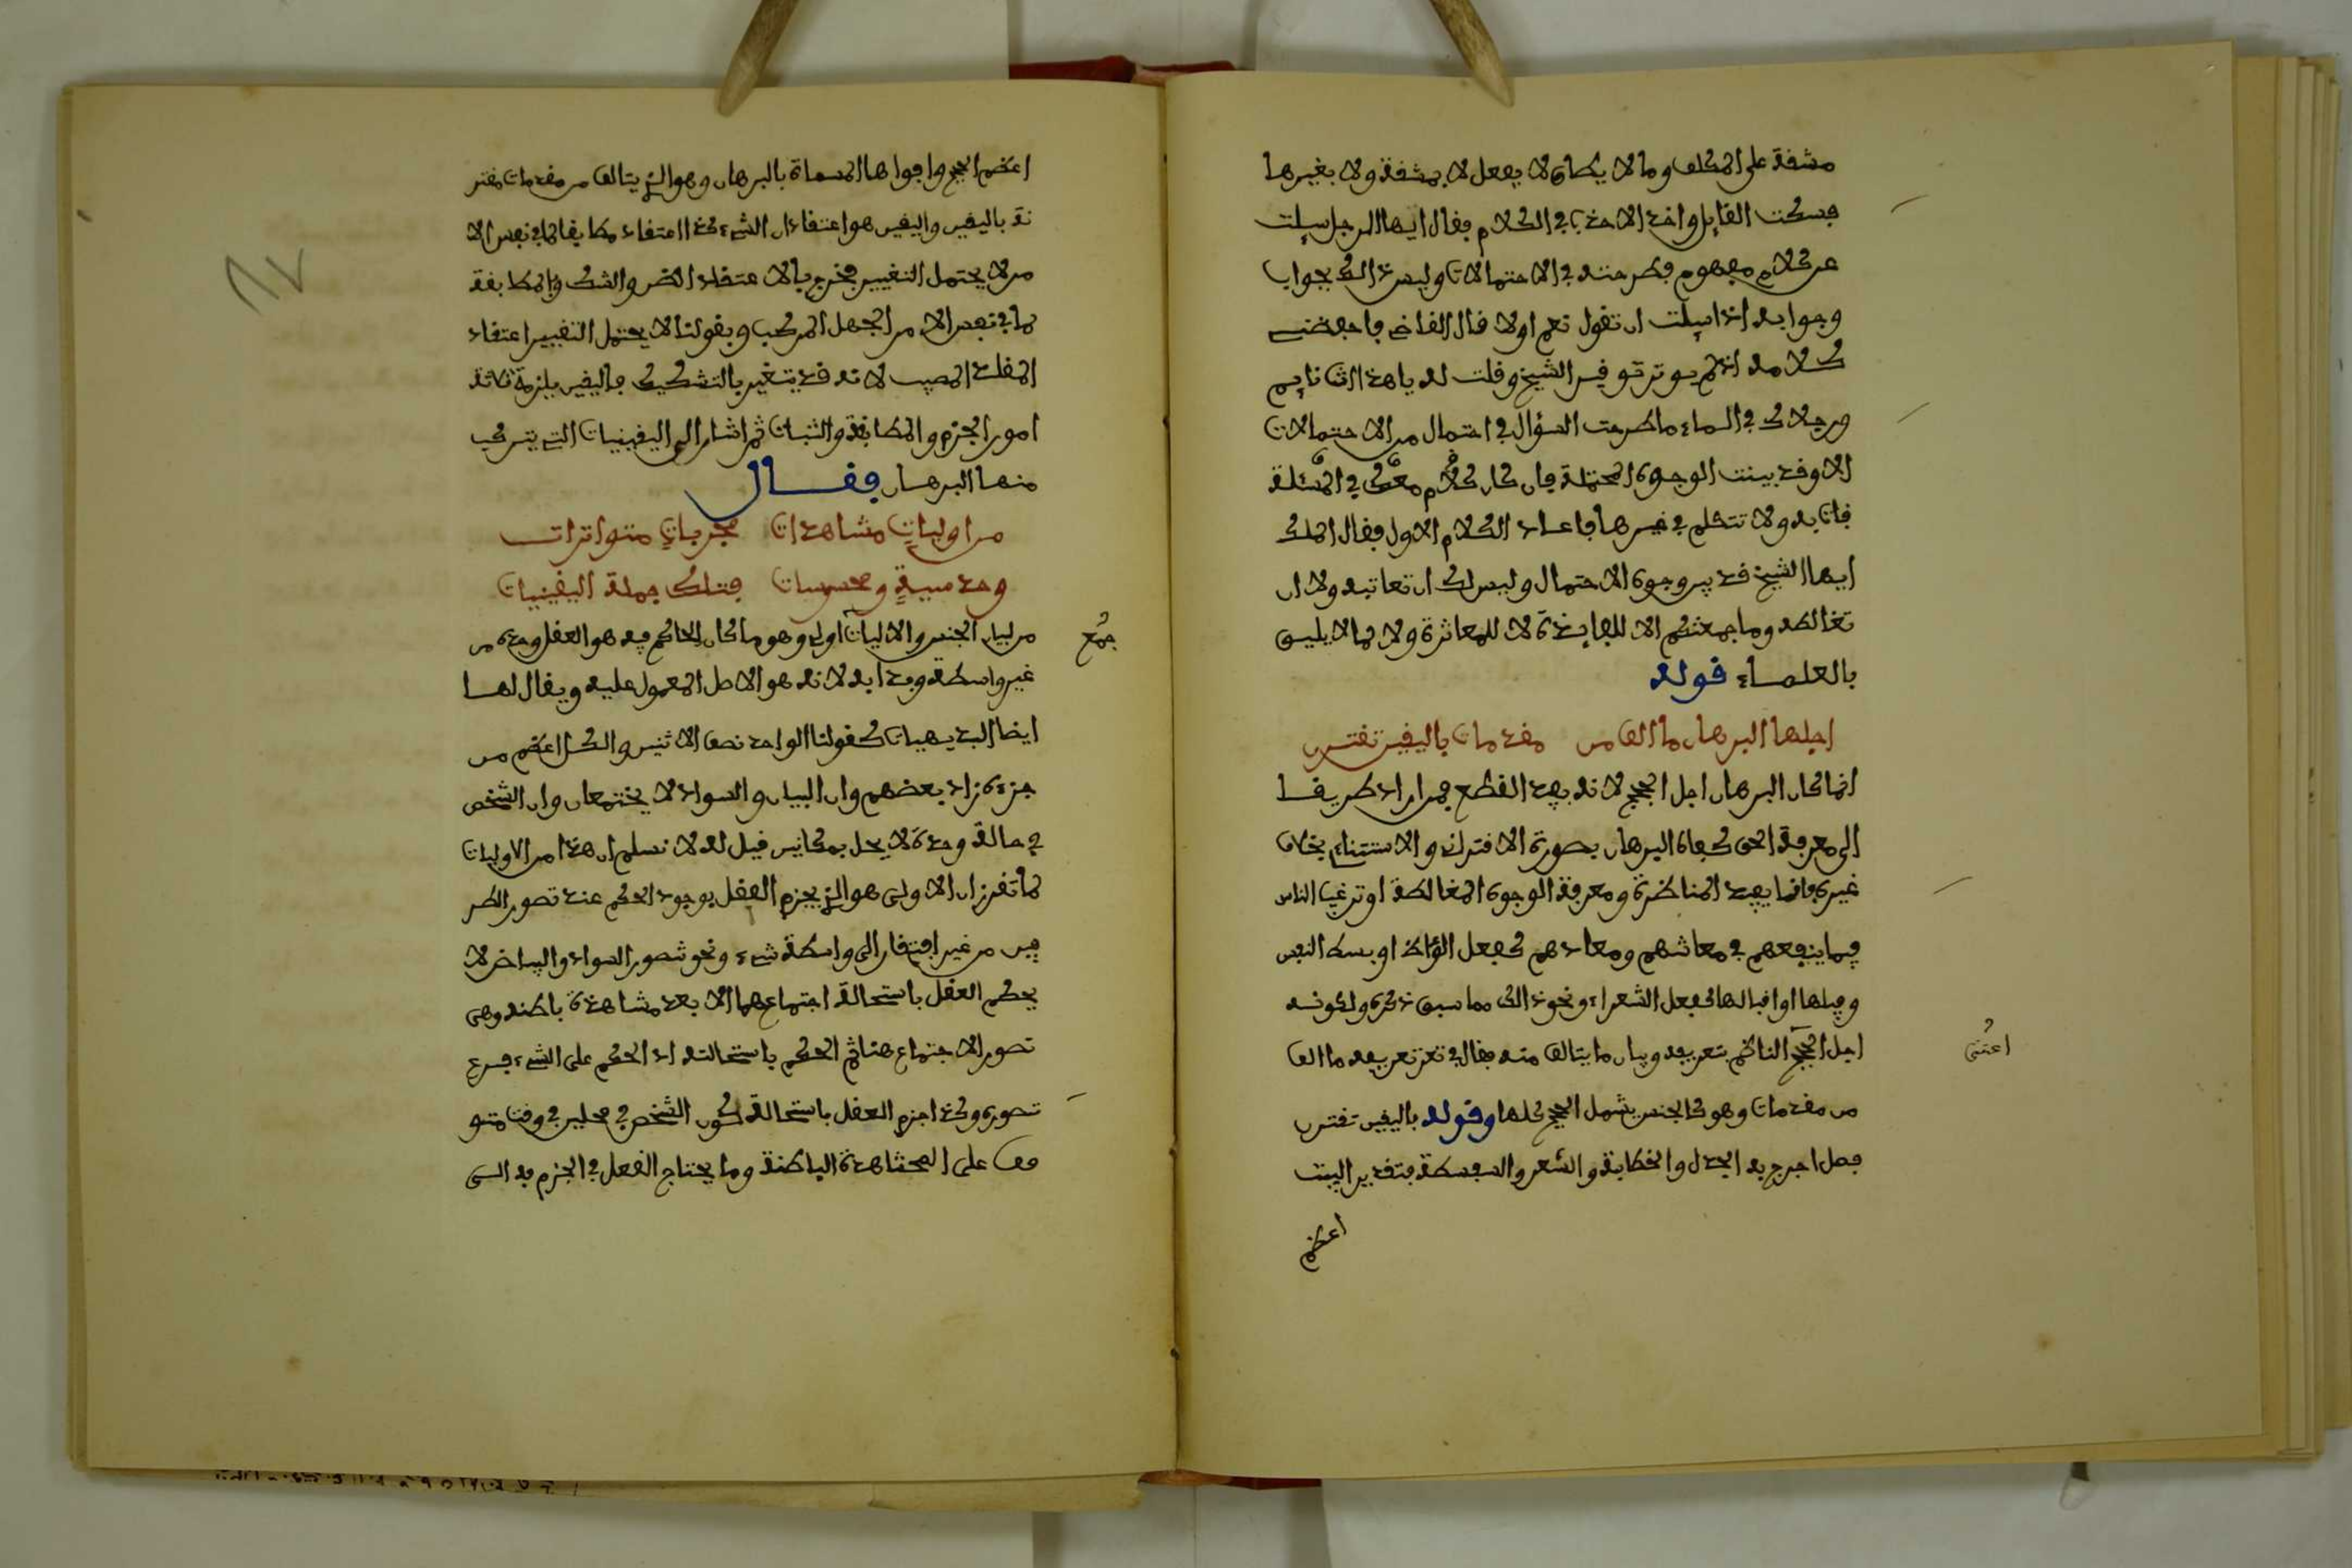 مشقة على المكلف وما لا يطاق لا يفعل لا بمشقة ولا بغيرها
فسكت القايل واخذ الاحذب في الكلام فقال ايها الرجل سيلت
عن كلام مفهوم فطرحته في الاحتمالات وليس ذالك بجواب
وجوابه اذا سيلت ان تقول نعم اولا قال القاضي فاحفظني
كلامه اذ لم يوقر الشيخ وقلت له يا هذا انت نايم
ورجلاك في الماء ما طرحت السؤال في احتمال من الاحتمالات
الا وقد بينت الوجوه المحتملة فان كان كلام معك في المسئلة
فات به ولا تتكلم في غيرها فاعاد الكلام الاول فقال الملك
ايها الشيخ قد بين وجوه الاحتمال وليس لك ان تعاتبه ولا ان
تغالطه وما جمعتكم الا للفايدة لا للمعاثرة ولا لما لا يليق
بالعلماء قوله
اجلها البرهان ما الف من مقدمات باليقين تقترن
انما كان البرهان اجل الحجج لانه يفيد القطع فمن اراد طريقا
الى معرفة الحق كفاه البرهان بصورة الاقتران والاستثناء بخلاف
غيره فانما يفيد المناظرة ومعرفة الوجوه المغالطة او ترغيب الناس
فيما ينفعهم في معاشهم ومعادهم كفعل الوعاظ او بسط النفس
وقبلها او اقبالها كفعل الشعراء ونحو ذالك مما سبق ذكره ولكونه
اجل الحجج الناظم بتعريفه وبيان ما يتالف منه فقال في تعريفه ما الف
اعتنى
من مقدمات وهو كالجنس يشمل الحجج كلها وقوله باليقين تقترن
فصل اخرج به الجدل والخطابة والشعر والسفسطة فتقدير البيت
اعظم
اعظم الحجج واقواها المسماة بالبرهان وهو الذي يتالف من مقدمات مقتر
نة باليقين واليقين هو اعتقاد ان الشيء كذا اعتقاد مطابقا لما في نفس الا
مر لا يحتمل التغيير فخرج بالاعتقاد الظن والشك وبالمطابقة
لما في نفس الامر الجهل المركب وبقولنا لا يحتمل التغيير اعتقاد
المقلد المصيب لانه قد يتغير بالتشكيك فاليقين يلزمه ثلاثة
امور الجزم والمطابقة والثبات ثم اشار الى اليقينيات التي يتركب
منها البرهان فقال
من اوليات مشاهدات مجربات متواترات
وحدسية ومحسوسات فتلك جملة اليقينيات
من لبيان الجنس والاليات اولي وهو ما كان الحاكم فيه هو العقل وحده من
جمع
غير واسطة وبدا به لانه هو الاصل المعول عليه ويقال لها
ايضا البديهيات كقولنا الواحد نصف الاثنين والكل اعظم من
جزءه زاد بعضهم وان البياض والسواد لا يجتمعان وان الشخص
في حالة وحدة لا يحل بمكانين قيل له لا نسلم ان هذا من الاوليات
لما تقرر ان الاولى هو الذي يجزم العقل بوجود الحكم عند تصور الطر
فين من غير افتقار الى واسطة شيء ونحو تصور السواد والبياض لا
يحكم العقل باستحالة اجتماعهما الا بعد مشاهدة باطنه وهى
تصور الاجتماع هنا ثم الحكم باستحالته اذ الحكم على الشيء فرع
تصوره وكذا جزم العقل باستحالة كون الشخص في محلين في وقت متو
قف على المشاهدة الباطنة وما يحتاج العقل في الجزم به الى